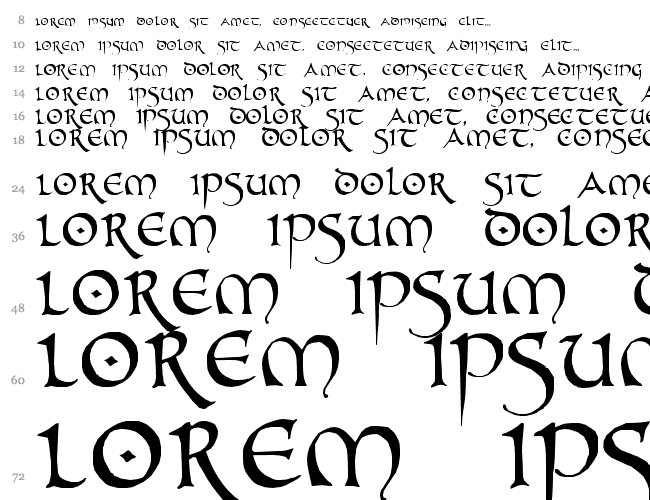 8 Lorem ipsum dolor sit amet, consectetuer adipiscing elit...
10 Lorem ipsum dolor sit amet, consectetuer adipiscing elit...
12 Lorem ipsum dolor sit amet, consectetuer adipiscing
14 Lorem ipsum dolor sit amet, consectetuer A
16 Lorem ipsum dolor sit amet, consectetue
18 Lorem ipsum dolor sit amet, consec
24 Lorem ipsum dolor sit ame
36 Lorem ipsum dolor
48 Lorem ipsum
60 Lorem ipsu
72 Lorem ips